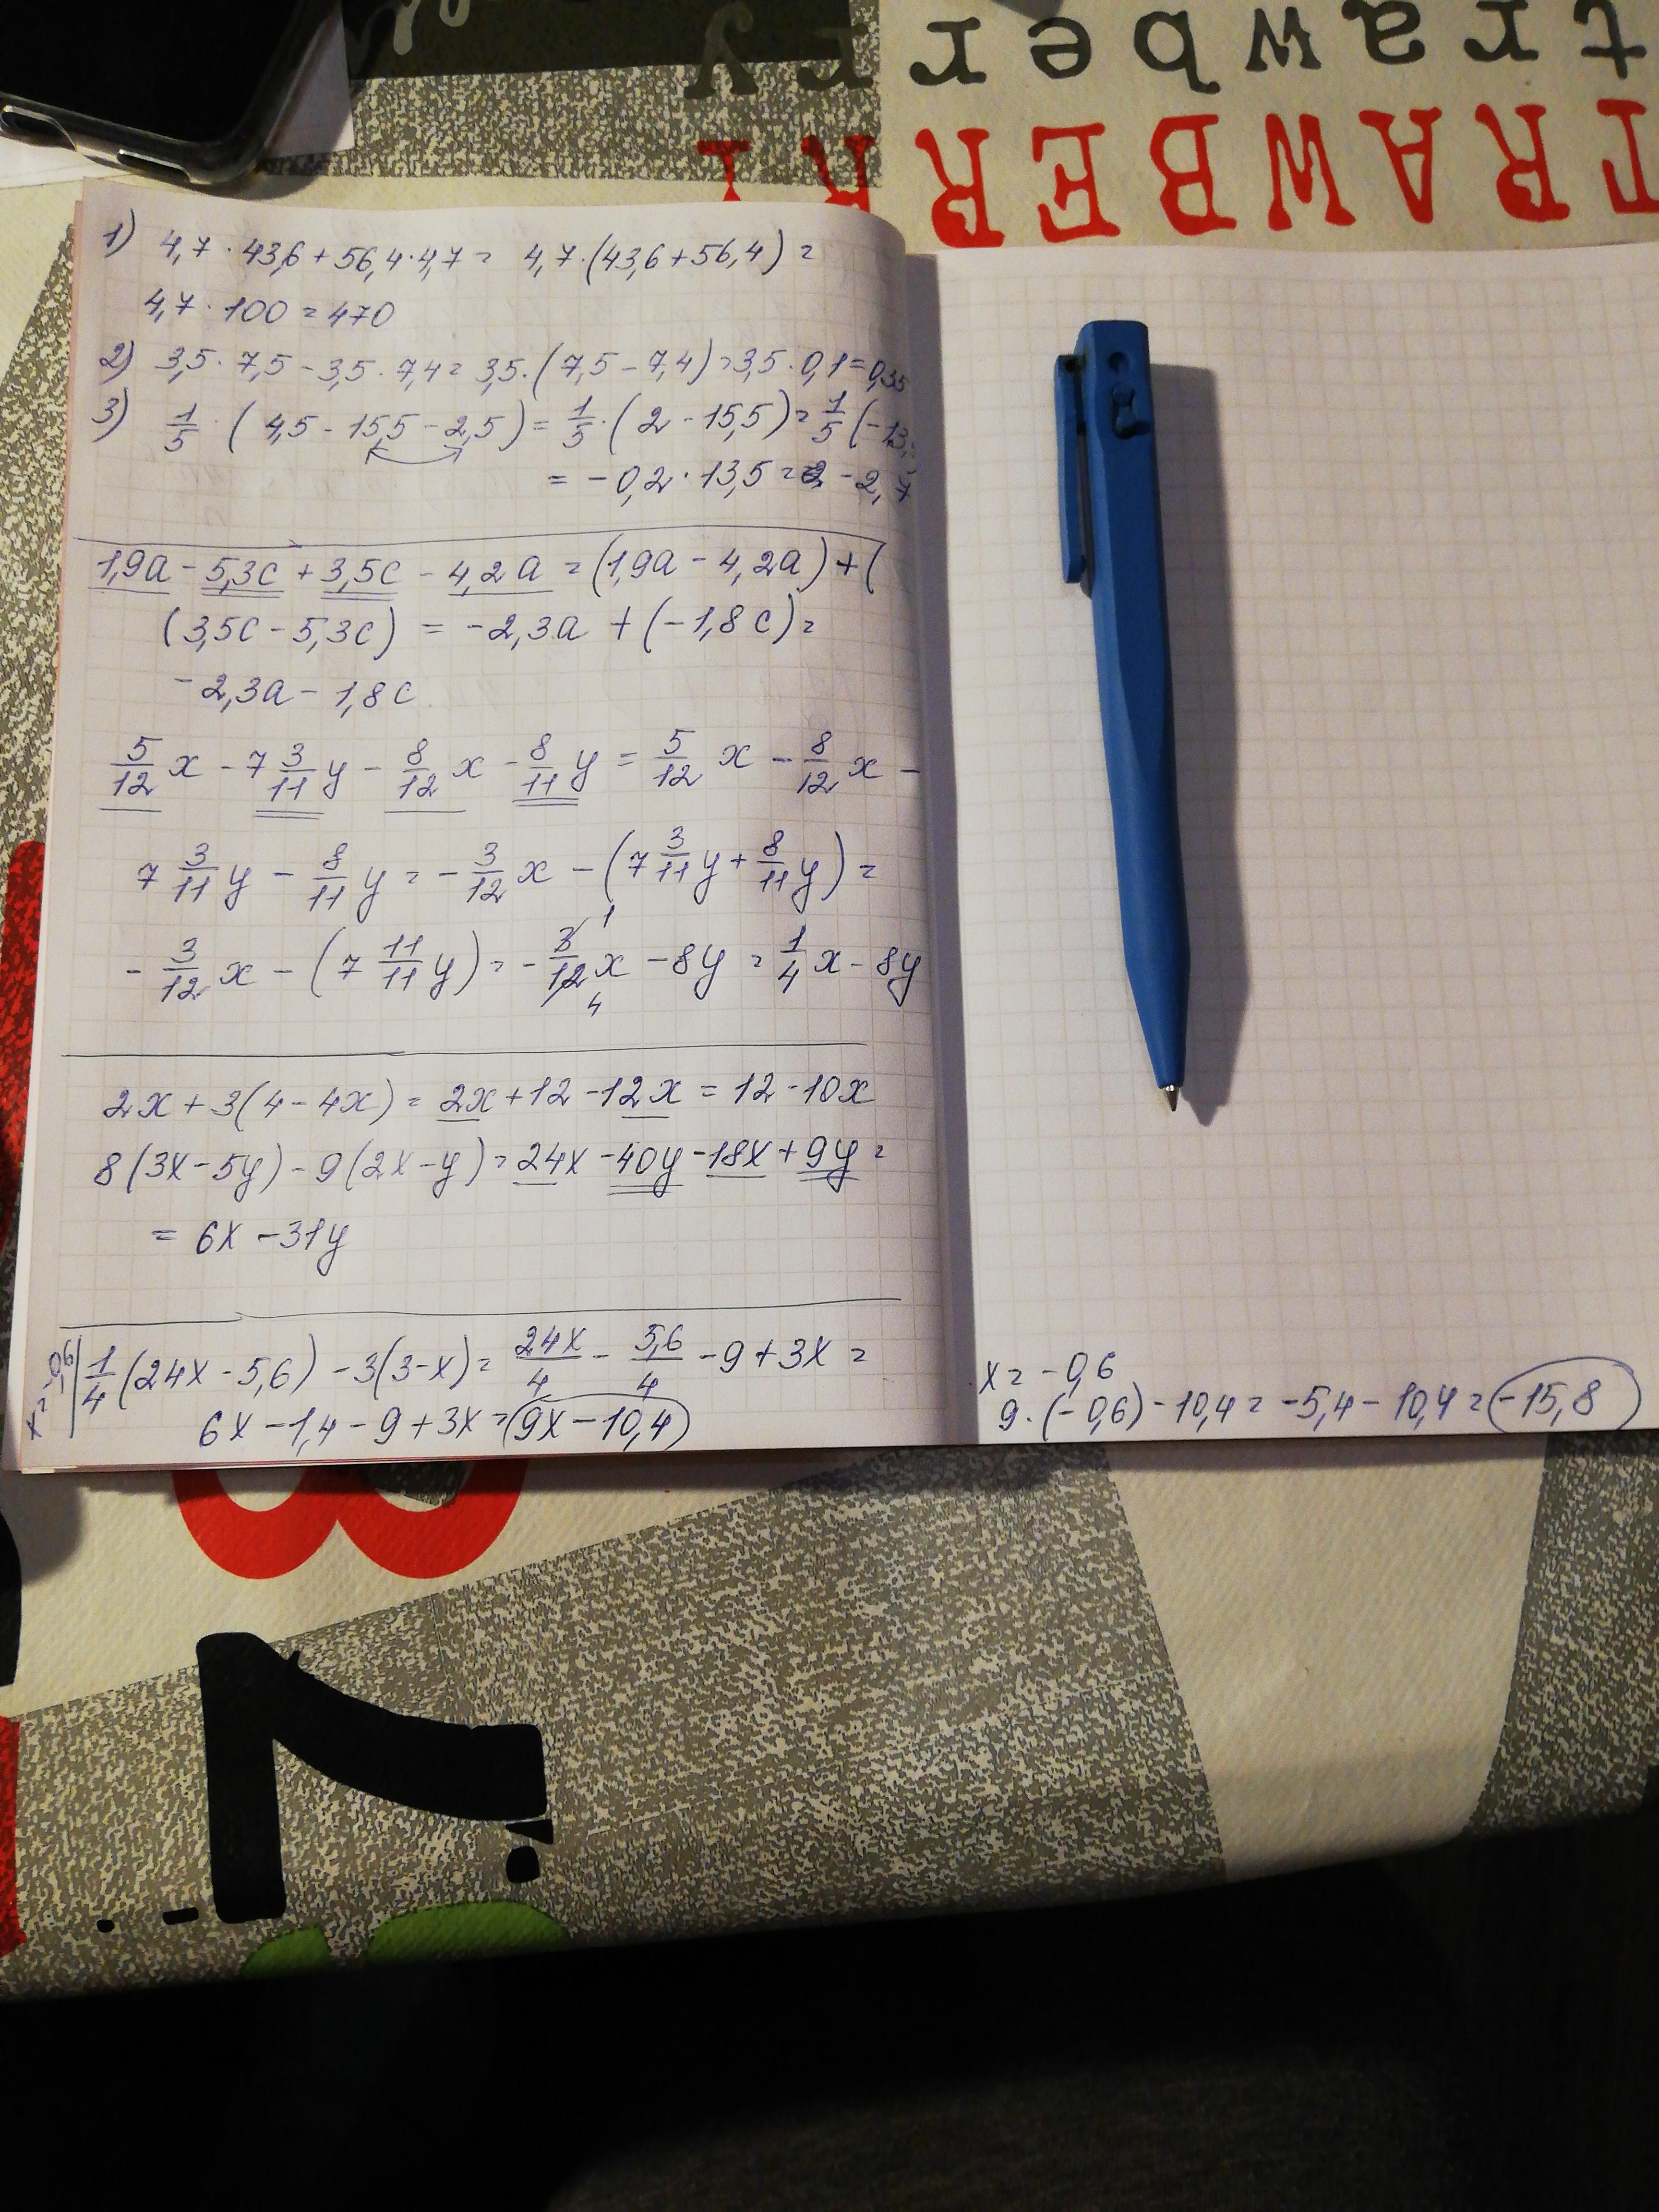 trawberry
TRAWBERRY
1) 4,7 · 43,6 + 56,4 · 4,7 = 4,7 · (43,6 + 56,4) =
4,7 · 100 = 470
2) 3,5 · 7,5 - 3,5 · 7,4 = 3,5 · (7,5 - 7,4) = 3,5 · 0,1 = 0,35
3) 1/5 · (4,5 - 15,5 - 2,5) = 1/5 · (2 - 15,5) = 1/5 (-13,
= -0,2 · 13,5 = -2,7
1,9a - 5,3c + 3,5c - 4,2a = (1,9a - 4,2a) + (
(3,5c - 5,3c) = -2,3a + (-1,8c) =
-2,3a - 1,8c
5/12 x - 7 3/11 y - 8/12 x - 8/11 y = 5/12 x - 8/12 x -
7 3/11 y - 8/11 y = - 3/12 x - (7 3/11 y + 8/11 y) =
- 3/12 x - (7 11/11 y) = - 3/12 1 4 x - 8y = 1/4 x - 8y
2x + 3(4 - 4x) = 2x + 12 - 12x = 12 - 10x
8(3x - 5y) - 9(2x - y) = 24x - 40y - 18x + 9y =
= 6x - 31y
x = -0,6 | 1/4 (24x - 5,6) - 3(3 - x) = 24x/4 - 5,6/4 - 9 + 3x =
6x - 1,4 - 9 + 3x = 9x - 10,4
x = -0,6
9 · (-0,6) - 10,4 = -5,4 - 10,4 = -15,8